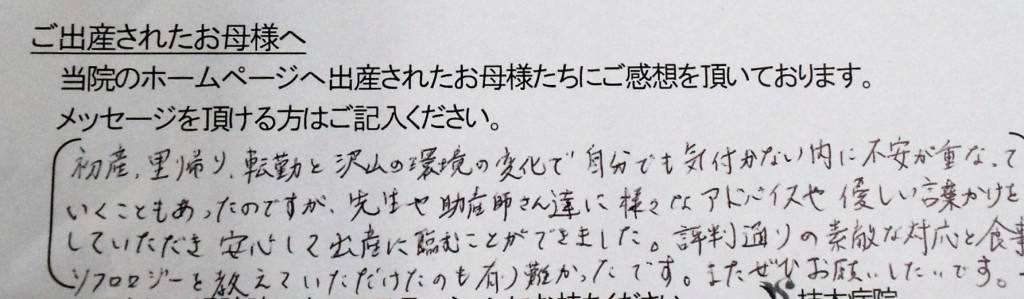 ご出産されたお母様へ
当院のホームページへ出産されたお母様たちにご感想を頂いております。
メッセージを頂ける方はご記入ください。
初産、里帰り、転勤と沢山の環境の変化で自分でも気付かない内に不安が重なって
いくこともあったのですが、先生や助産師さん達に様々なアドバイスや優しい言葉かけを
していただき安心して出産に臨むことができました。評判通りの素敵な対応と食事
ソフロロジーを教えていただけたのも有り難かったです。またぜひお願いしたいです。